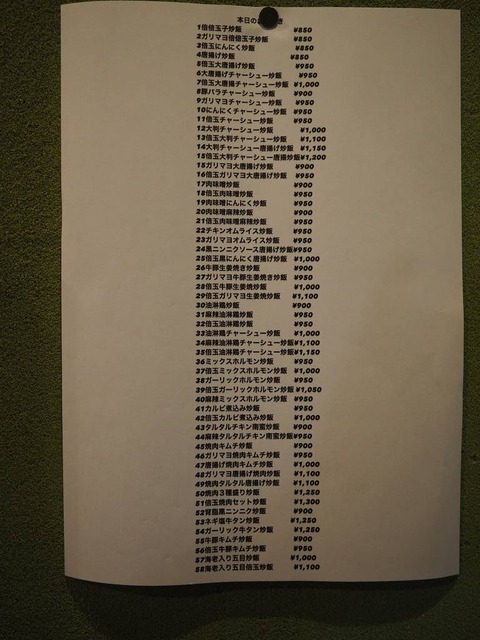 本日のお
1倍倍玉子炒飯 ¥850
2ガリマヨ倍倍玉子炒飯 ¥850
3倍玉にんにく炒飯 ¥850
4唐揚げ炒飯 ¥850
5倍玉大唐揚げ炒飯 ¥950
6大唐揚げチャーシュー炒飯 ¥950
7倍玉大唐揚げチャーシュー炒飯 ¥1,000
8豚バラチャーシュー炒飯 ¥900
9ガリマヨチャーシュー炒飯 ¥950
10にんにくチャーシュー炒飯 ¥950
11倍玉チャーシュー炒飯 ¥950
12大判チャーシュー炒飯 ¥1,000
13倍玉大判チャーシュー炒飯 ¥1,100
14大判チャーシュー唐揚げ炒飯 ¥1,150
15倍玉大判チャーシュー唐揚炒飯¥1,200
15ガリマヨ大唐揚げ炒飯 ¥900
16倍玉ガリマヨ大唐揚げ炒飯 ¥950
17肉味噌炒飯 ¥900
18倍玉肉味噌炒飯 ¥950
19肉味噌にんにく炒飯 ¥950
20肉味噌麻辣炒飯 ¥900
21倍玉肉味噌麻辣炒飯 ¥950
22チキンオムライス炒飯 ¥950
23ガリマヨオムライス炒飯 ¥950
24黒ニンニクソース唐揚げ炒飯¥950
25倍玉黒にんにく唐揚げ炒飯 ¥1,000
26牛豚生姜焼き炒飯 ¥900
27ガリマヨ牛豚生姜焼き炒飯 ¥950
28倍玉牛豚生姜炒飯 ¥1,000
29倍玉ガリマヨ生姜焼炒飯 ¥1,100
30油淋鶏炒飯 ¥900
31麻辣油淋鶏炒飯 ¥950
32倍玉油淋鶏炒飯 ¥950
33油淋鶏チャーシュー炒飯 ¥1,000
34麻辣油淋鶏チャーシュー炒飯¥1,100
35倍玉油淋鶏チャーシュー炒飯¥1,150
36ミックスホルモン炒飯 ¥950
37倍玉ミックスホルモン炒飯 ¥1,000
38ガーリックホルモン炒飯 ¥950
39倍玉ガーリックホルモン炒飯 ¥1,050
40麻辣ミックスホルモン炒飯 ¥950
41カルビ煮込み炒飯 ¥950
42倍玉カルビ煮込み炒飯 ¥1,000
43タルタルチキン南蛮炒飯 ¥900
44麻辣タルタルチキン南蛮炒飯¥950
45焼肉キムチ炒飯 ¥900
46ガリマヨ焼肉キムチ炒飯 ¥950
47唐揚げ焼肉キムチ炒飯 ¥1,000
48ガリマヨ唐揚げ焼肉炒飯 ¥1,100
49焼肉タルタル唐揚げ炒飯 ¥1,100
50焼肉3種盛り炒飯 ¥1,250
51倍玉焼肉セット炒飯 ¥1,300
52背脂黒ニンニク炒飯 ¥900
53ネギ塩牛タン炒飯 ¥1,250
54ガーリック牛タン炒飯 ¥1,250
55牛豚キムチ炒飯 ¥900
56倍玉牛豚キムチ炒飯 ¥950
57海老入り五目炒飯 ¥1,000
58海老入り五目倍玉炒飯 ¥1,100